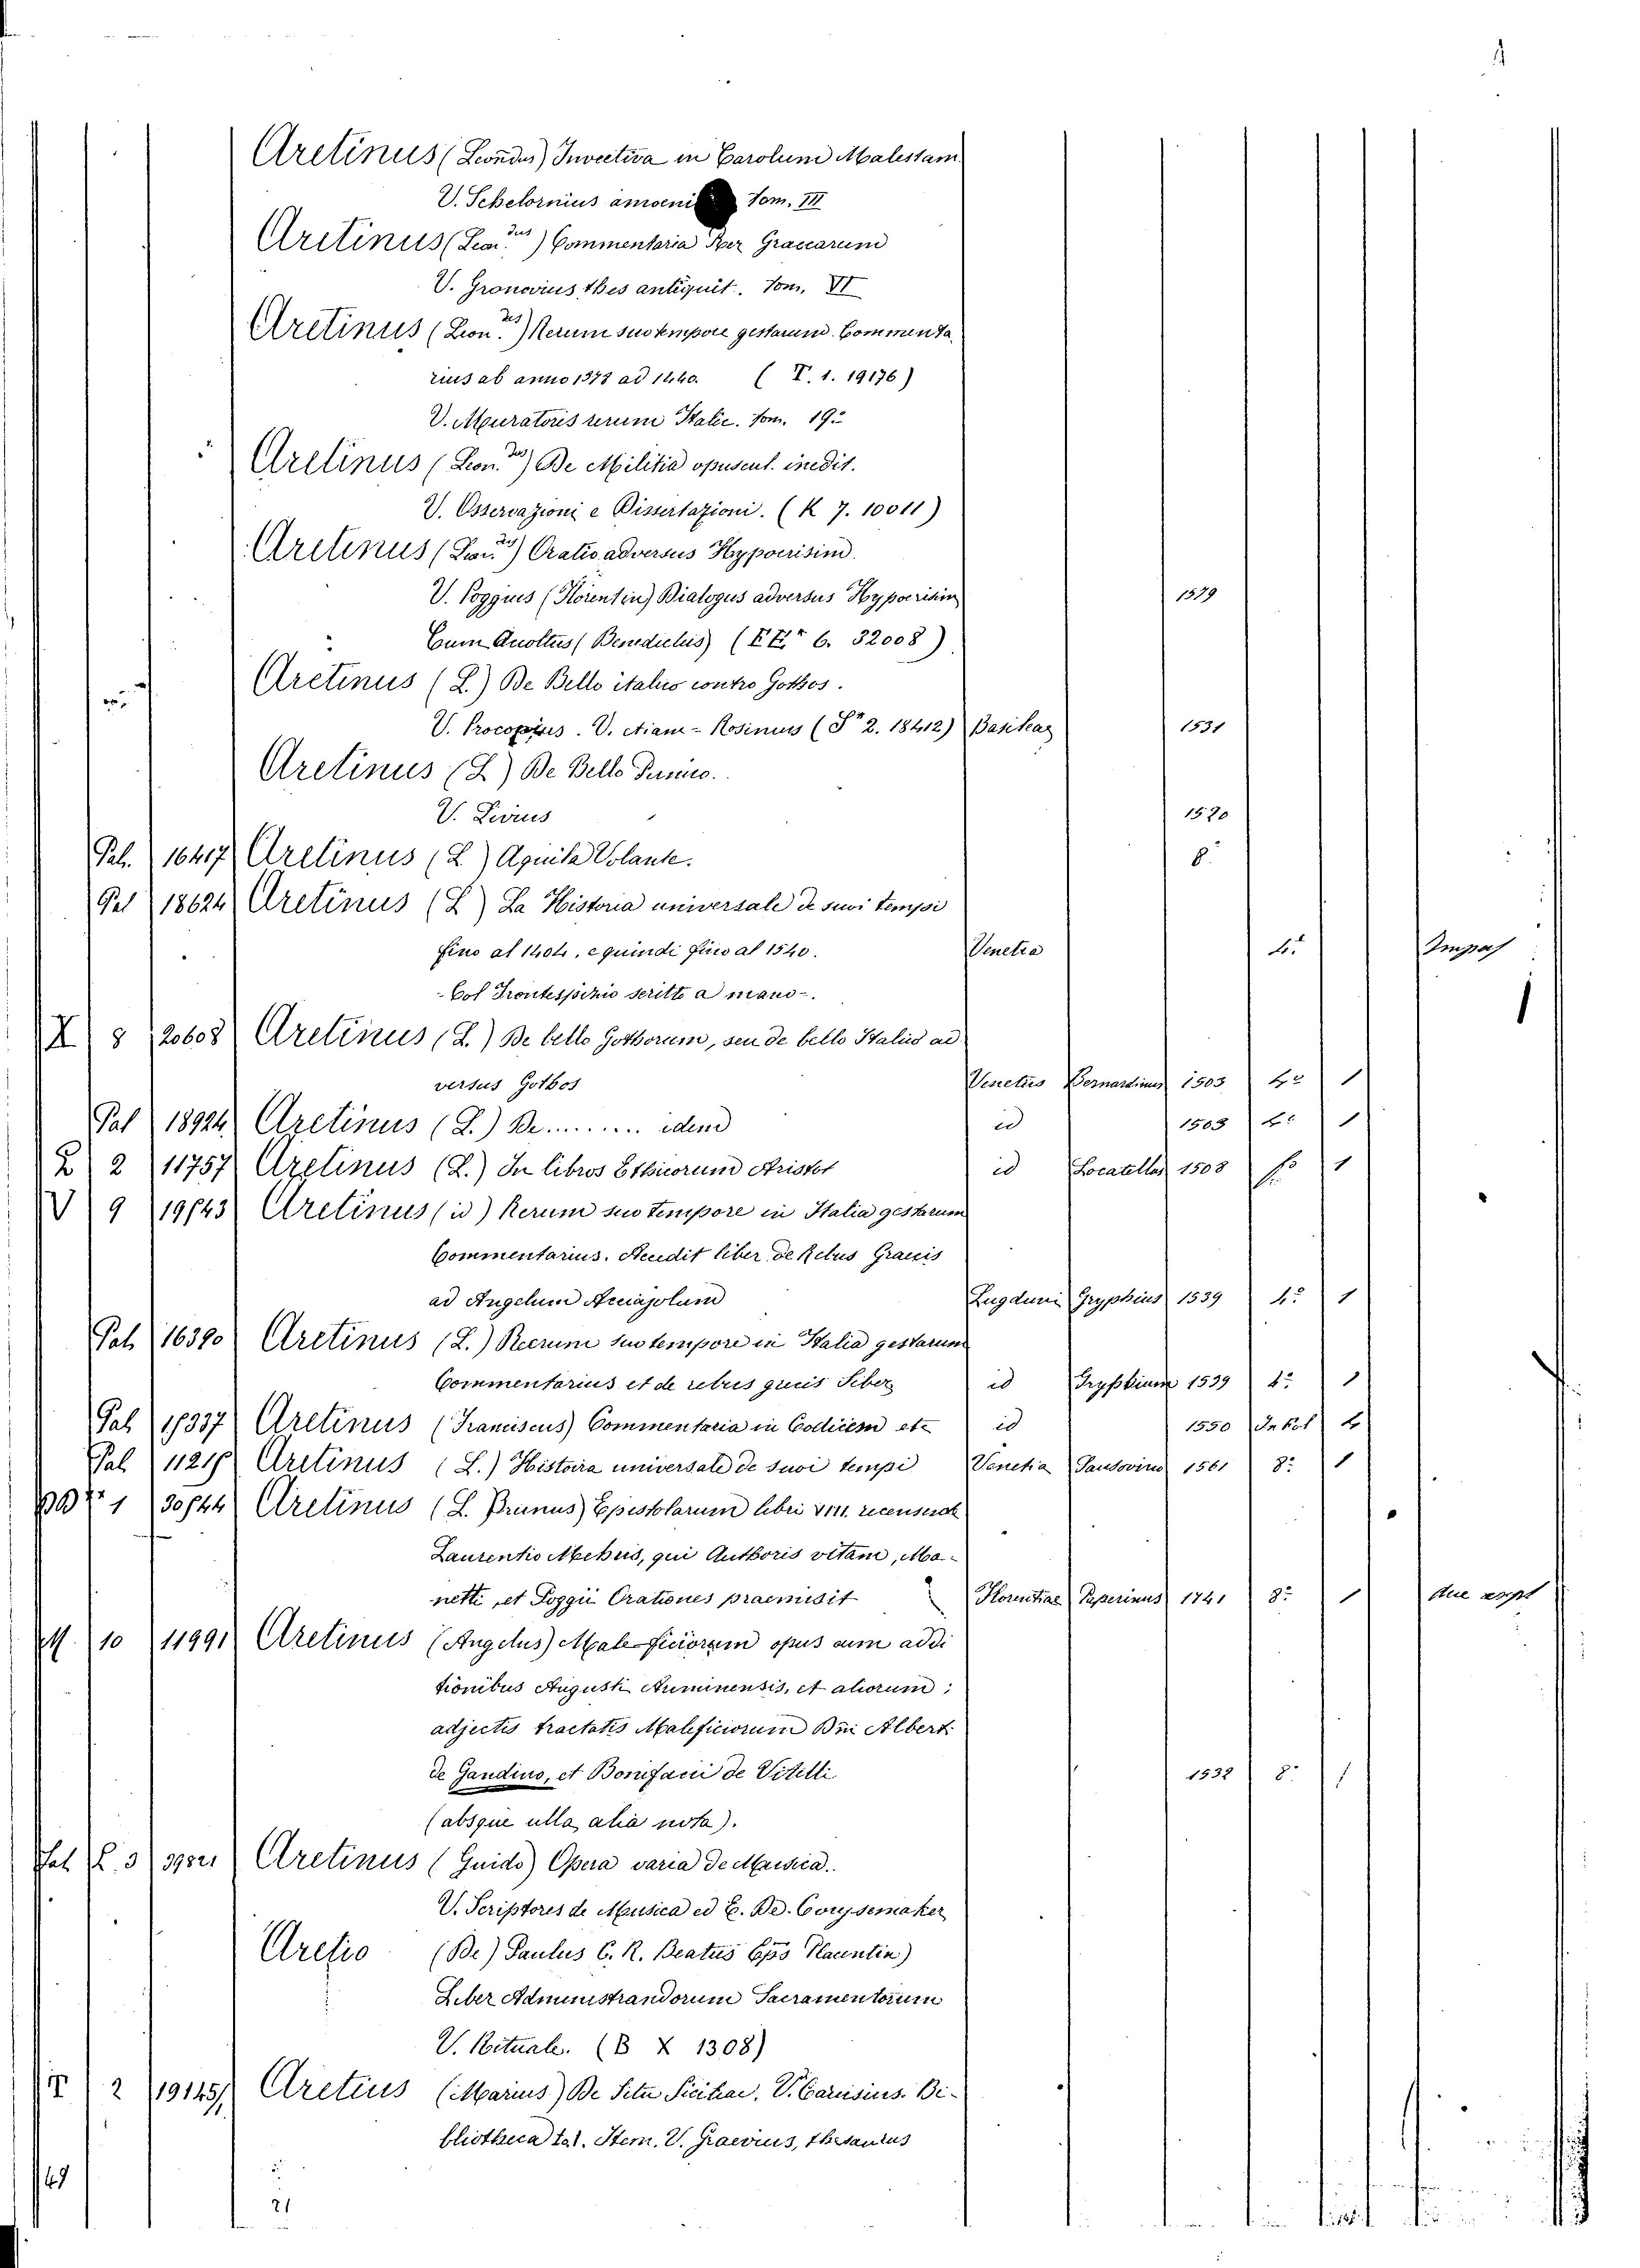 Aretinus (Leondus) Invectiva in Carolum Malestam
V. Schelornius amoeni Tom. III
Aretinus (Leon.dus) Commentaria Rer Graecarum
V. Gronovius thes antiquit. Tom. VI
Aretinus (Leon.dus) Rerum suo tempore gestarum Commenta
rius ab anno 1378 ad 1440. ( T. 1. 19176)
V. Muratoris rerum Italic. Tom. 19.
Aretinus (Leon.dus) De Militia opuscul. inedit.
V. Osservazioni e Dissertazioni. (K 7. 10011)
Aretinus (Leon.dus) Oratio adversus Hypocrisim
V. Poggius (Florentin) Dialogus adversus Hypocrisim 1579
Cum Accoltus (Benedictus) ( 6. 32008)
Aretinus (L.) De Bello italico contro Gothos.
V. Procopius. V. Aiam-Rosinus (S 2. 18412) Basileae 1531
Aretinus (L) De Bello Punico.
V. Livius 1520
Pal. 16417 Aretinus (L) Aquila Volante. 8.
Pal 18624 Aretinus (L) La Historia universale de suoi tempi
fino al 1404, e quindi fino al 1540. Venetia 4.
- Col Frontespizio scritto a mano -.
X 8 20608 Aretinus (L.) De bello Gothorum, seu de bello Italico ad
versus Gothos Venetiis Bernardinus 1503 4.º 1
Pal 18924 Aretinus (L.) De ......... idem id 1503 4.º 1
2 2 11757 Aretinus (L.) In libros Ethicorum Aristot id Locatellus 1508 fº 1
V 9 19843 Aretinus (id) Rerum suo tempore in Italia gestarum
Commentarius. Accedit liber de Rebus Graecis
ad Angelum Acciajolum Lugduni Gryphius 1539 4.º 1
Pal 16390 Aretinus (L.) Recrum suo tempore in Italia gestarum
Commentarius et de rebus grecis Liber id Gryphium 1539 4.º 1
Pal 17337 Aretinus (Franciscus) Commentaria in Codicem etc id 1550 In fol
Pal 11218 Aretinus (L.) Histoira universale de suoi tempi Venetia Sansovino 1561 8º 1
1 30844 Aretinus (L. Brunus) Epistolarum libri VIII. recensente
Laurentio Mehus, qui Authoris vitam, Ma-
netti, et Poggii Orationes praemisit Florentiae Paperinus 1741 8º 1
M. 10 11991 Aretinus (Angelus) Maleficiorum opus cum addi
tionibus Augusti Ariminensis, et aliorum;
adjectis tractatis Maleficiorum Dni Albert.
de Gandino, et Bonifacii de Vitelli 1532 8º 1
(absque ulla alia nota).
Pal L. 3 39821 Aretinus (Guido) Opera varia de Musica.
V. Scriptores de Musica ed E. De. Coryssemaker
Aretio (De) Paulus C. R. Beatus Epo Placentin)
Liber Administrandorum Sacramentorum
V. Rituale. (B X 1308)
2 19145 Aretius (Marius) De Situ Siciliae. V. Carusius. Bi-
bliotheca to 1. Item. V. Graevius, thesaurus
21